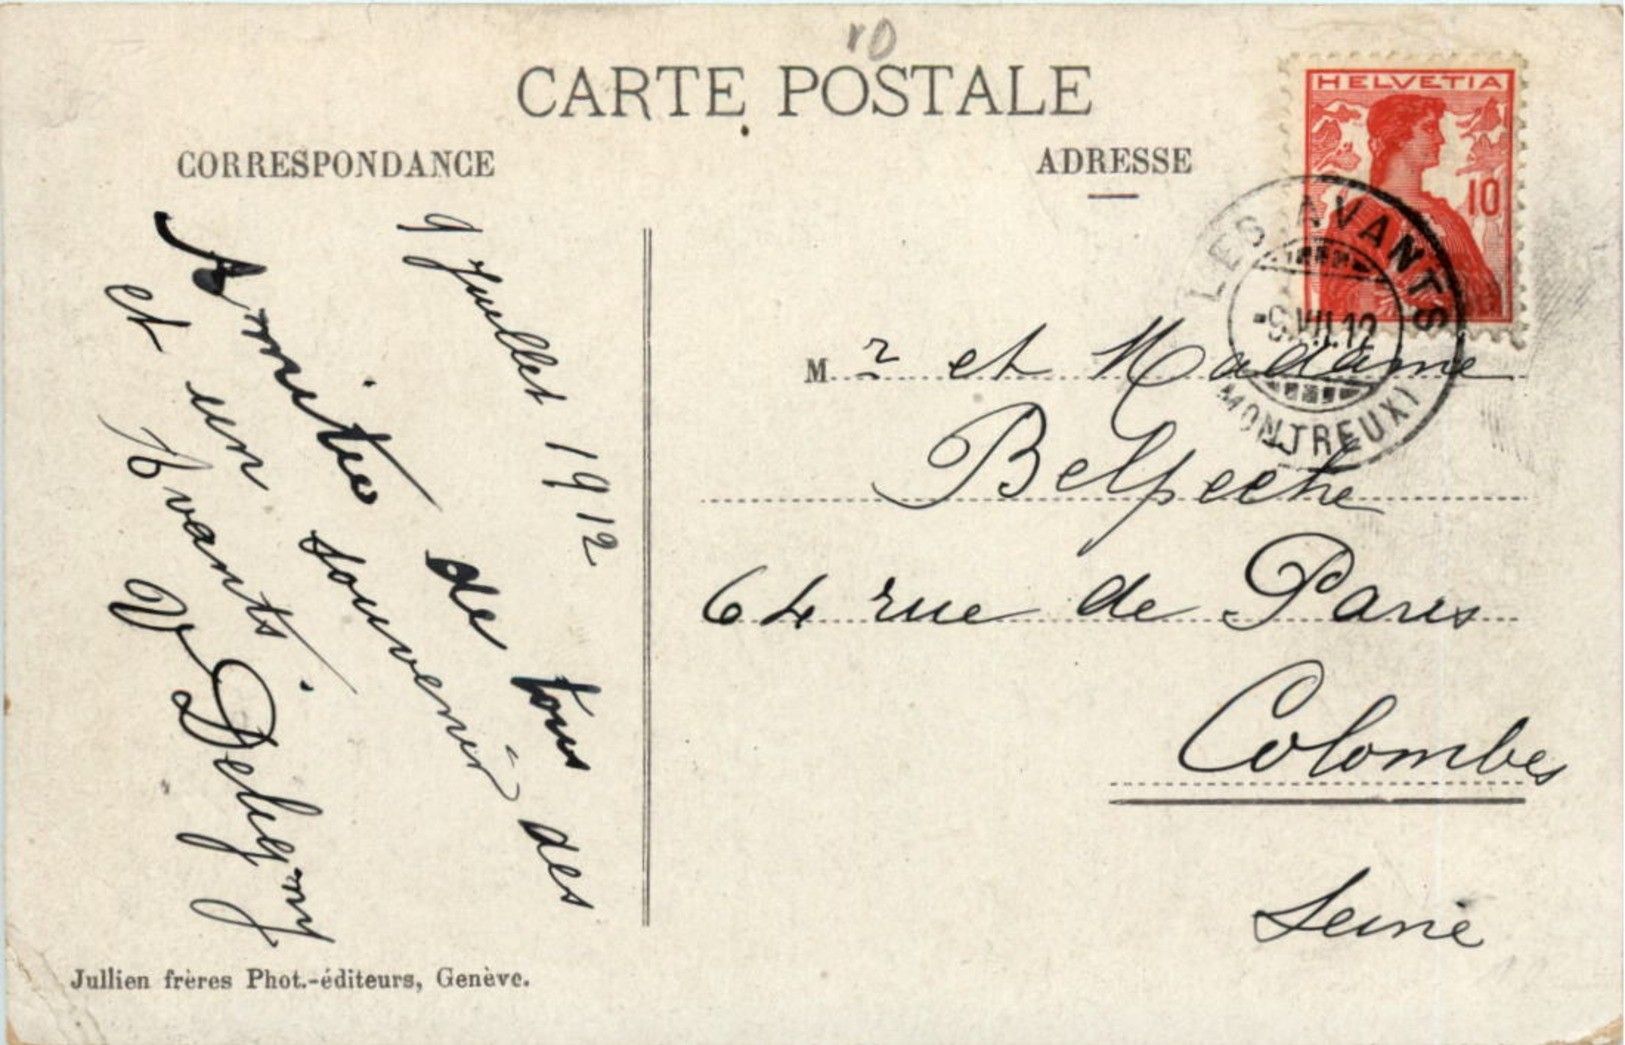 CARTE POSTALE
CORRESPONDANCE
ADRESSE
HELVETIA
10
LES AVANTS
-9.VII.12
(MONTREUX)
9 Juillet 1912
Amitiés de tous
et un souvenir des
Avants.
V Deligny
Mr et Madame
Belpeche
64 rue de Paris
Colombes
Seine
Jullien frères Phot.-éditeurs, Genève.